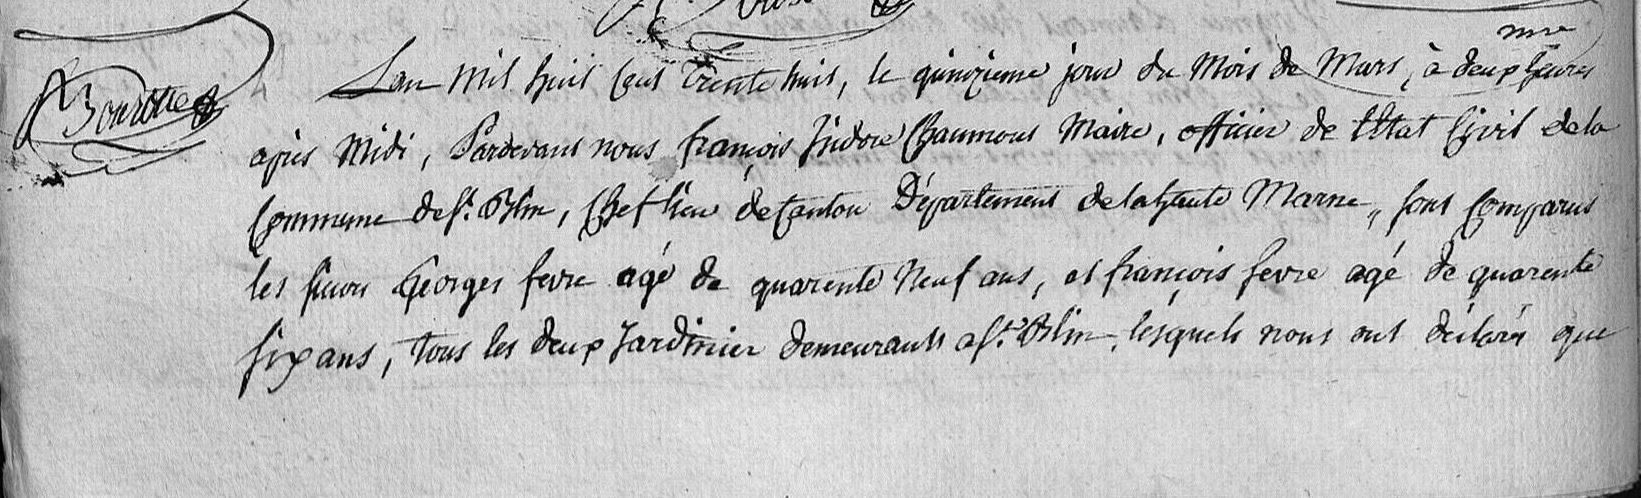 mre
Bourotte
Lan mil huit cent trente huit, le quinzieme jour du Mois de Mars, à deux heures
après Midi, Pardevant nous françois Isidore Chaumont Maire, officier de l'Etat Civil de la
Commune de St. Blin, Chef lieu de Canton Département de la haute Marne, sont Comparus
les sieurs Georges fevre agé de quarente Neuf ans, et françois fevre agé de quarente
six ans, tous les deux Jardinier demeurants a St. Blin, lesquels nous ont déclaré que